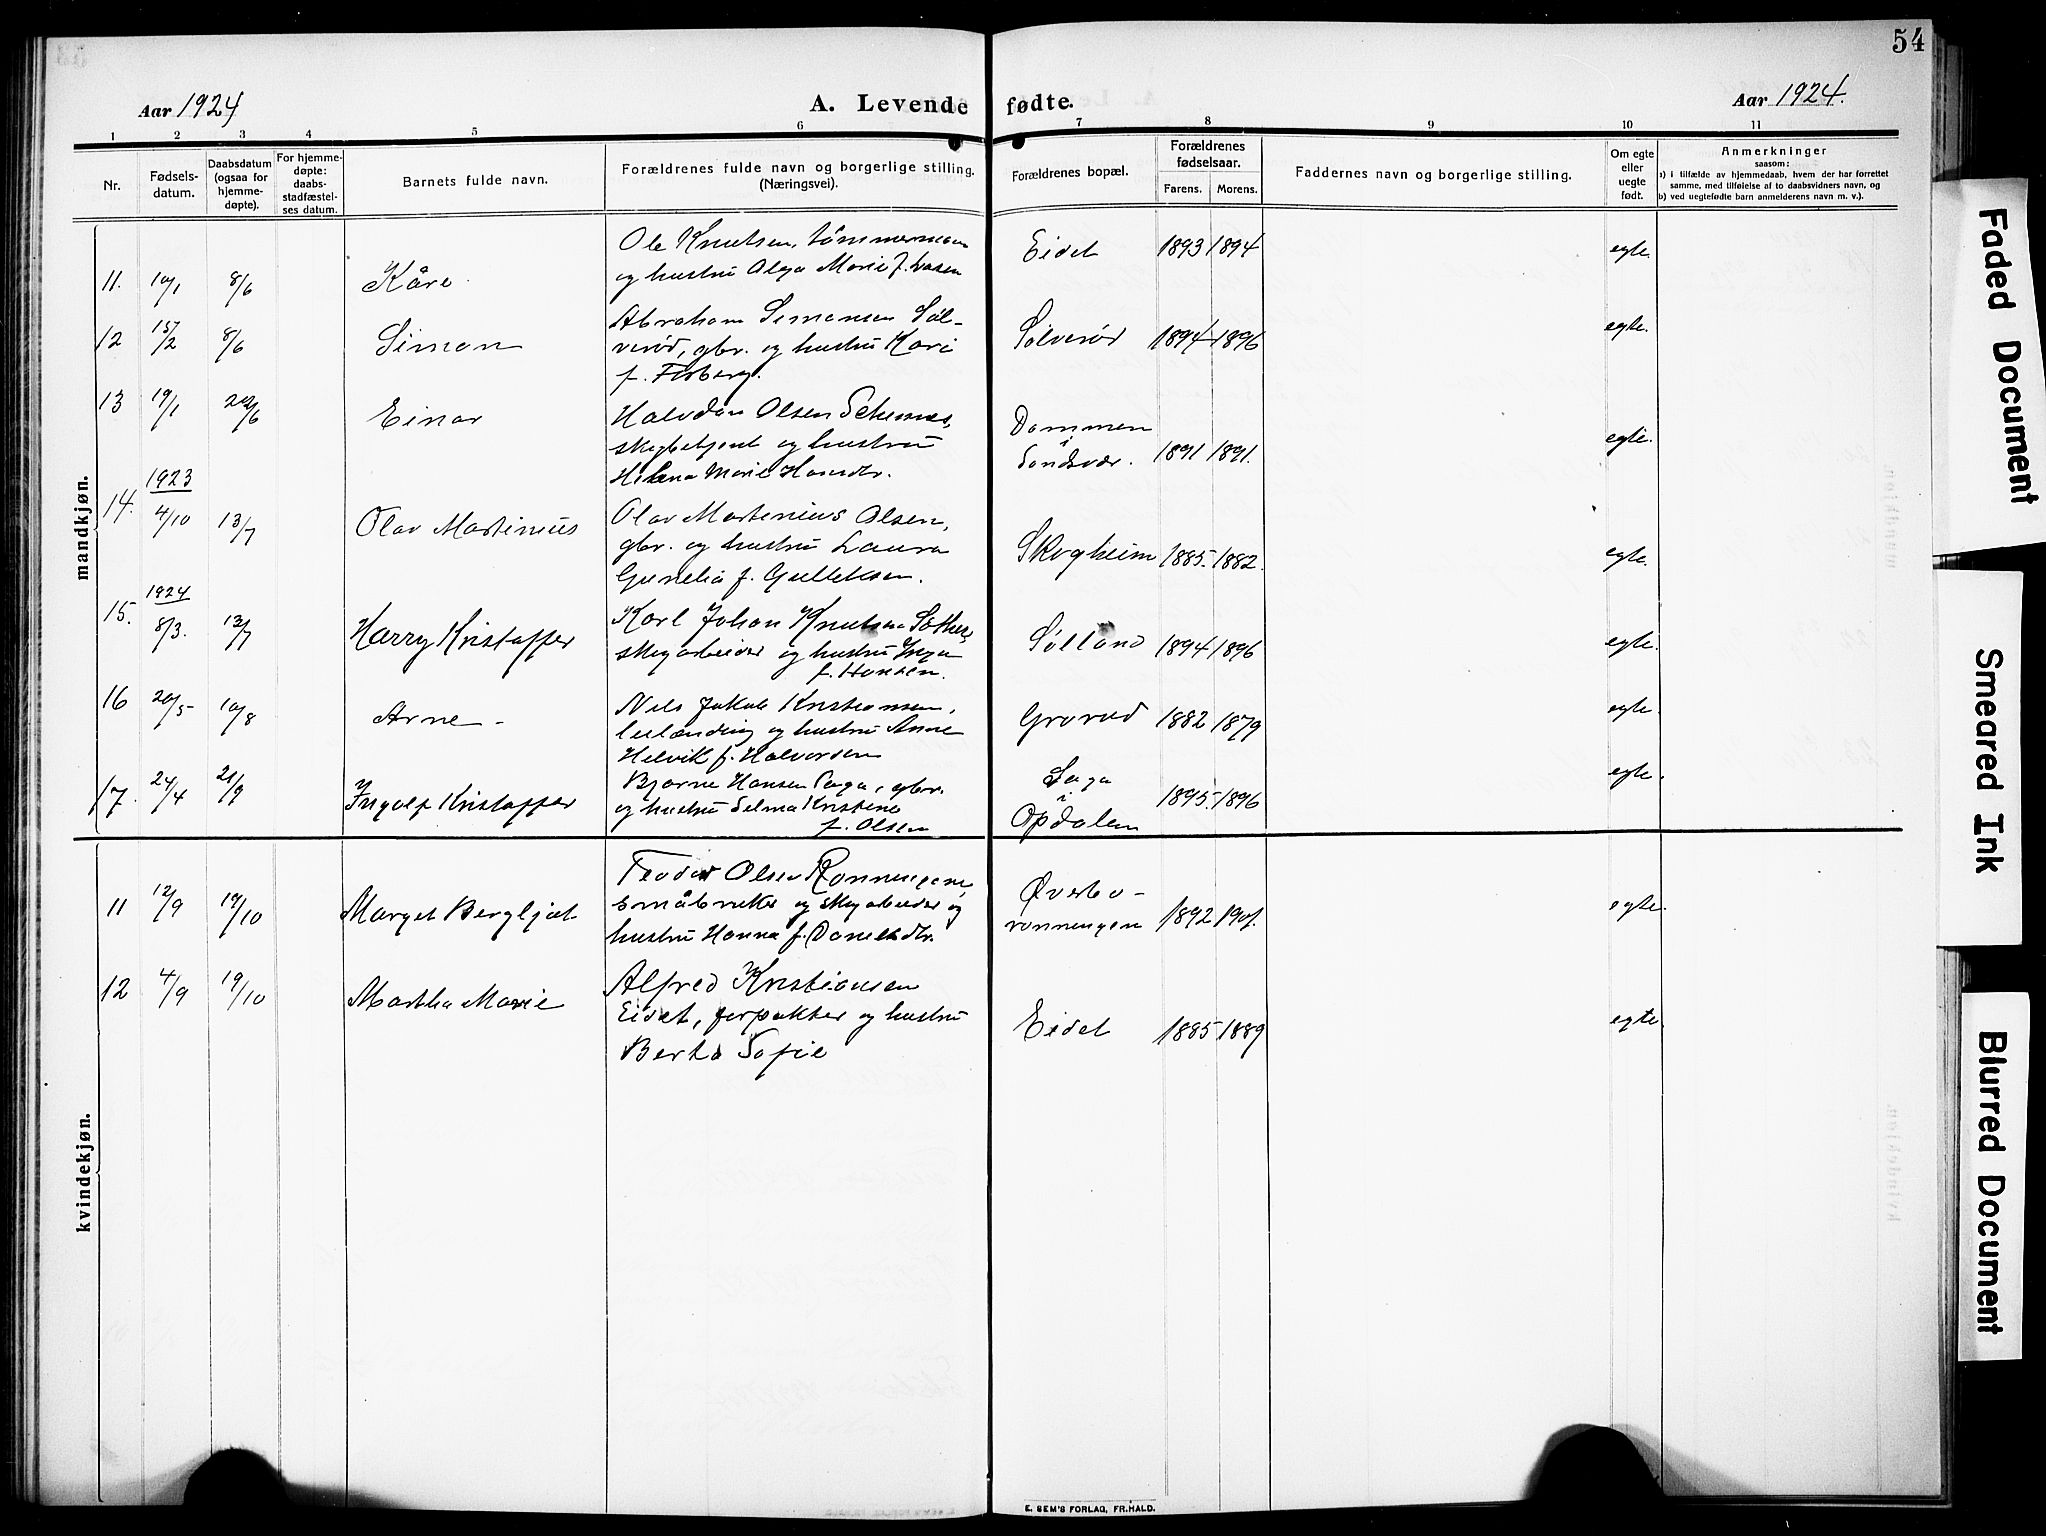 54
Aar 1924
A. Levende fødte.
Aar 1924.
1 2 3 4 5 6 7 8 9 10 11
Nr.
Fødsels-
datum.
Daabsdatum
(ogsaa for
hjemme-
døpte).
For hjemme-
døpte:
daabs-
stadfæstel-
ses datum.
Barnets fulde navn.
Forældrenes fulde navn og borgerlige stilling.
(Næringsvei).
Forældrenes bopæl.
Forældrenes
fødselsaar.
Farens. Morens.
Faddernes navn og borgerlige stilling.
Om egte
eller
uegte
født.
Anmerkninger
saasom:
a) i tilfælde av hjemmedaab, hvem der har forrettet
samme, med tilføielse af to daabsvidners navn, og
b) ved uegtefødte barn anmelderens navn m. v.).
mandkjøn.
11. 10/1 8/6 Kåre
Ole Knutsen, tømmermann
og hustru Olga Marie f.
Eidet 1893 1894 egte.
12 15/2 8/6 Simon
Abraham Simonsen Søl-
verød, gbr. og hustru Kari
f.
Sølverød 1894 1896 egte.
13 19/1 22/6 Einar
Halvdan Olsen
skogbetjent og hustru
Helena Marie Hansdtr.
Dammen
i
Sandsvær. 1891 1891. egte.
1923
14. 4/10 13/7 Olav Martinius
Olav Martinius Olsen,
gbr. og hustru Laura
Gunelia f. Gulliksen.
Skogheim 1885. 1882. egte.
1924
15. 8/3. 13/7 Harry Kristoffer
Karl Johan Knutsen
skogarbeider og hustru Inga
f. Hansen.
Sølland 1894 1896 egte.
16 20/5 10/8 Arne -
Nils Jakob Kristiansen,
leilænding og hustru Anne
Helvik f. Halvorsen
Gravrud 1882 1879 egte.
17. 24/4 21/9 Ingolf Kristoffer
Bjarne Hansen Saga, gbr.
og hustru Selma Kristine
f. Olsen
Saga
i
Opdalen 1895. 1896 egte.
kvindekjøn.
11 12/9 19/10 Marget Bergljot
Teodor Olsen Rønningene,
småbruker og skogarbeider og
hustru Hanna f. Danielsdtr.
Øverbø-
rønningen 1892 1901. egte.
12 4/9 19/10 Martha Marie
Alfred Kristiansen
Eidet, forpakter og hustru
Berta Sofie
Eidet 1885 1889 egte.
E. SEM'S FORLAG, FR.HALD.
Faded Document
Smeared Ink
Blurred Document